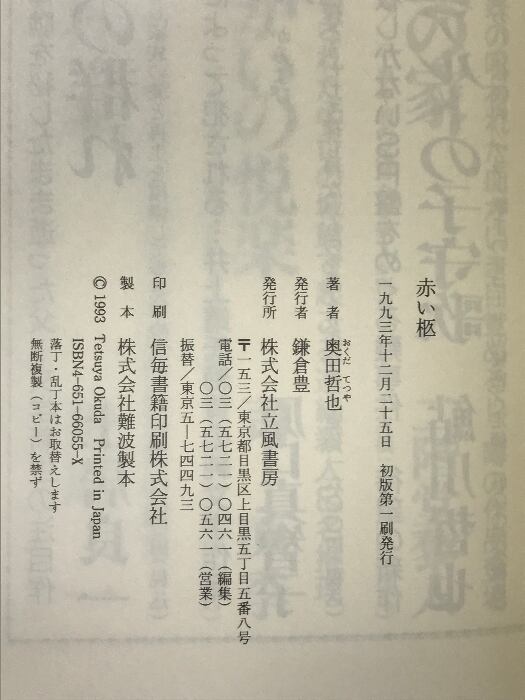 赤い柩
一九九三年十二月二十五日　初版第一刷発行
著　者　奥田哲也
おくだ　てつや
発行者　鎌倉豊
発行所　株式会社立風書房
〒一五三／東京都目黒区上目黒五丁目五番八号
電話／〇三（五七二一）〇四六一（編集）
〇三（五七二一）〇五六一（営業）
振替／東京五―七四四九三
印　刷　信毎書籍印刷株式会社
製　本　株式会社難波製本
© 1993　Tetsuya Okuda　Printed in Japan
ISBN4-651-66055-X
落丁・乱丁本はお取替えします
無断複製（コピー）を禁ず